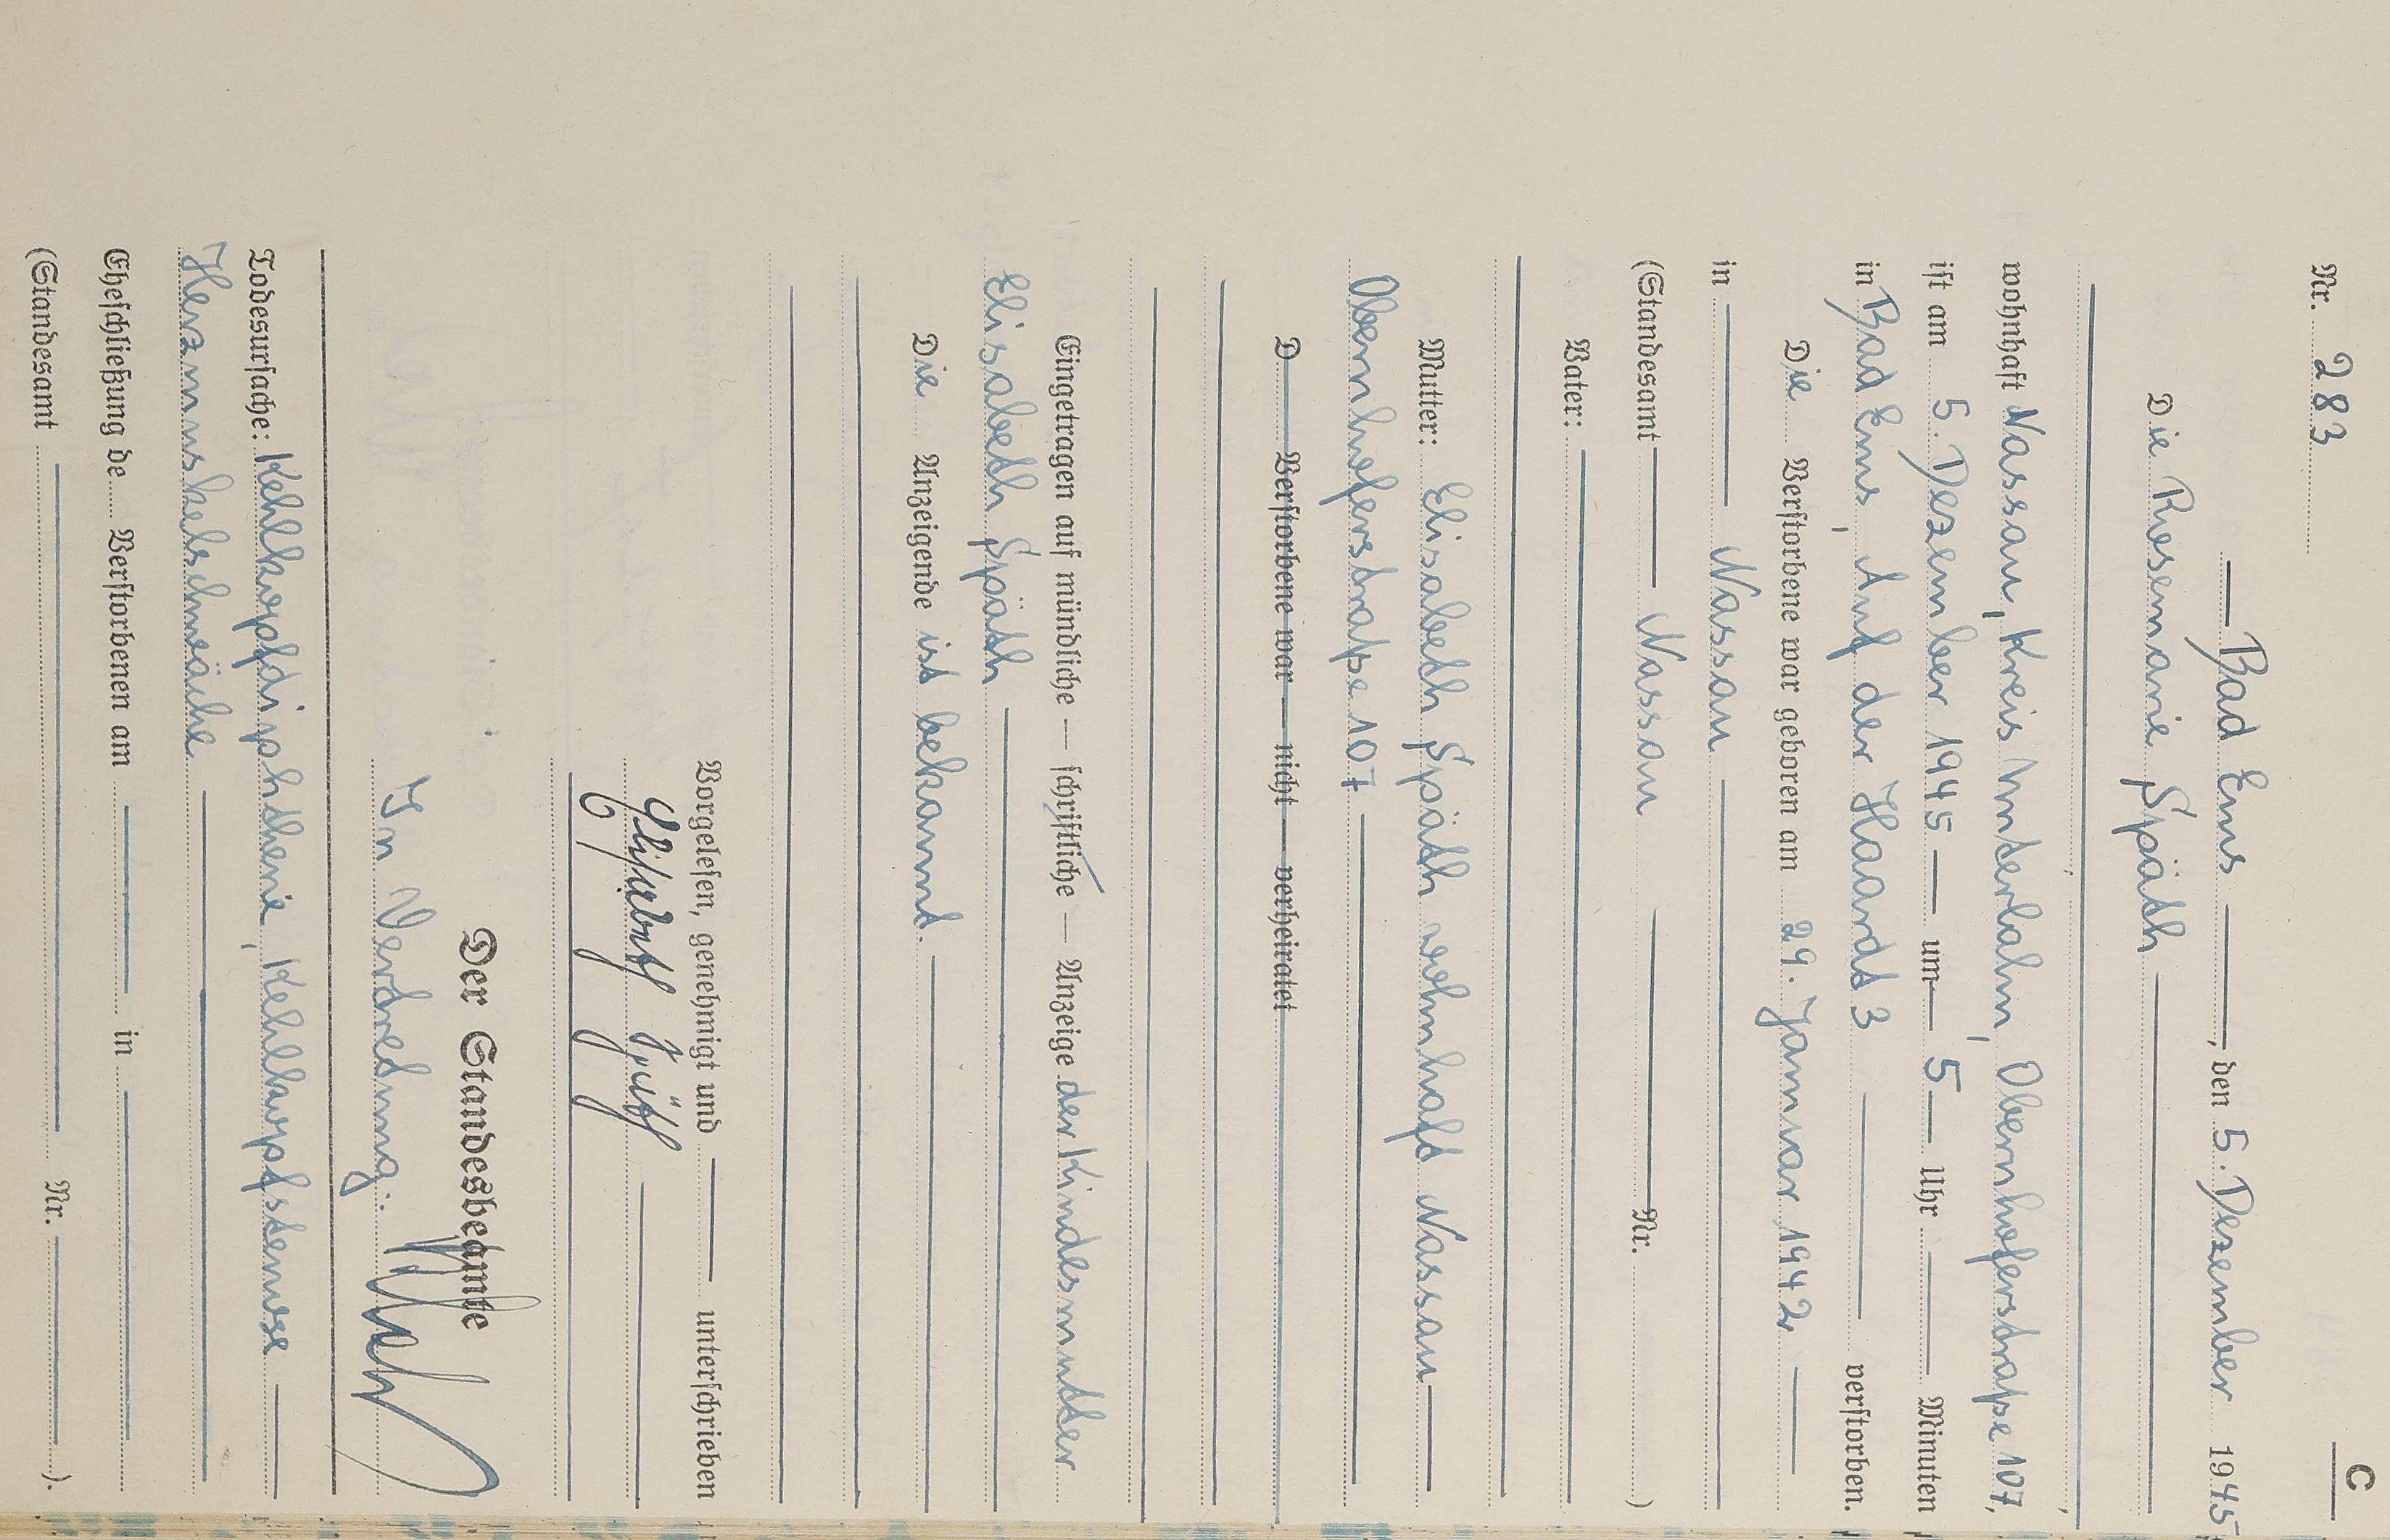 C
Nr. 283
Bad Ems, den 5. Dezember 1945
Die Rosemarie Späth
wohnhaft Nassau, Kreis Unterlahn, Obernhoferstraße 107,
ist am 5. Dezember 1945 um 5 Uhr Minuten
in Bad Ems, Auf der Haardt 3 verstorben.
Die Verstorbene war geboren am 29. Januar 1942
in Nassau
(Standesamt Nassau Nr. )
Vater:
Mutter: Elisabeth Späth wohnhaft Nassau
Obernhoferstraße 107
D Verstorbene war — nicht — verheiratet
Eingetragen auf mündliche — schriftliche — Anzeige der Kindesmutter
Elisabeth Späth
Die Anzeigende ist bekannt.
Vorgelesen, genehmigt und unterschrieben
Elisabeth Späth
Der Standesbeamte
In Vertretung:
Todesursache: Kehlkopfdiphtherie, Kehlkopfstenose
Herzmuskelschwäche
Eheschließung de Verstorbenen am in
(Standesamt Nr. ).